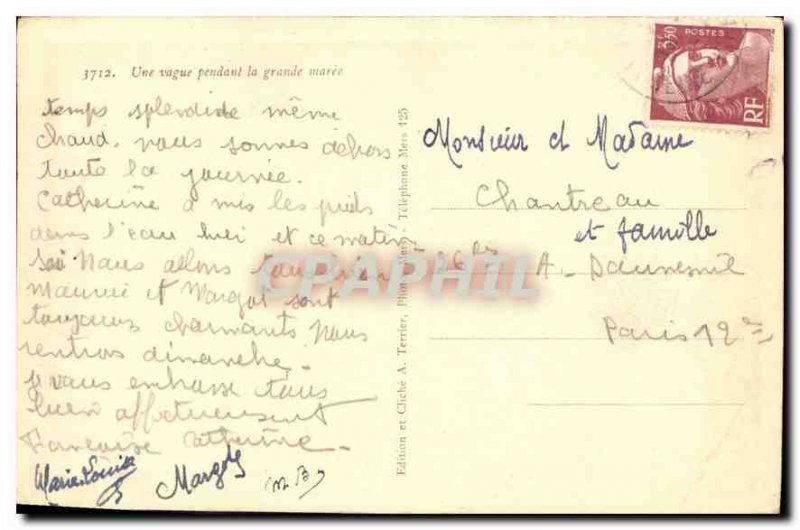 3712. Une vague pendant la grande marée
temps splendide même
chaud, nous sonnes dehors
toute la journée.
Catherine a mis les pieds
dans l'eau hier et ce matin
Nous allons tous bien
Maurice et Margot sont
toujours charmants Nous
rentrons dimanche.
je vous embrasse tous
bien affectueusement
Françoise Catherine
Marie Louise
Margot
Edition et Cliché A. Terrier, Photo Mers. Téléphone Mers 125
POSTES
3f50
RF
Monsieur et Madame
Chantreau
et famille
A. Daumesnil
Paris 12e
CPAPHIL